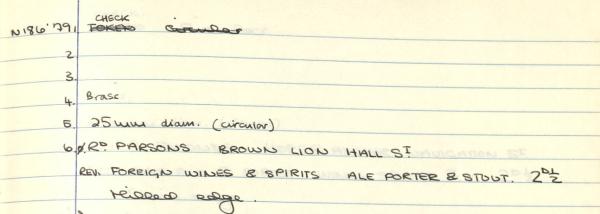 CHECK
N186'79, 1 TOKEN circular
2
3.
4. Brass
5. 25mm diam. (circular)
6. RD PARSONS BROWN LION HALL ST
REV. FOREIGN WINES & SPIRITS ALE PORTER & STOUT. 2 D 1/2
Milled edge.